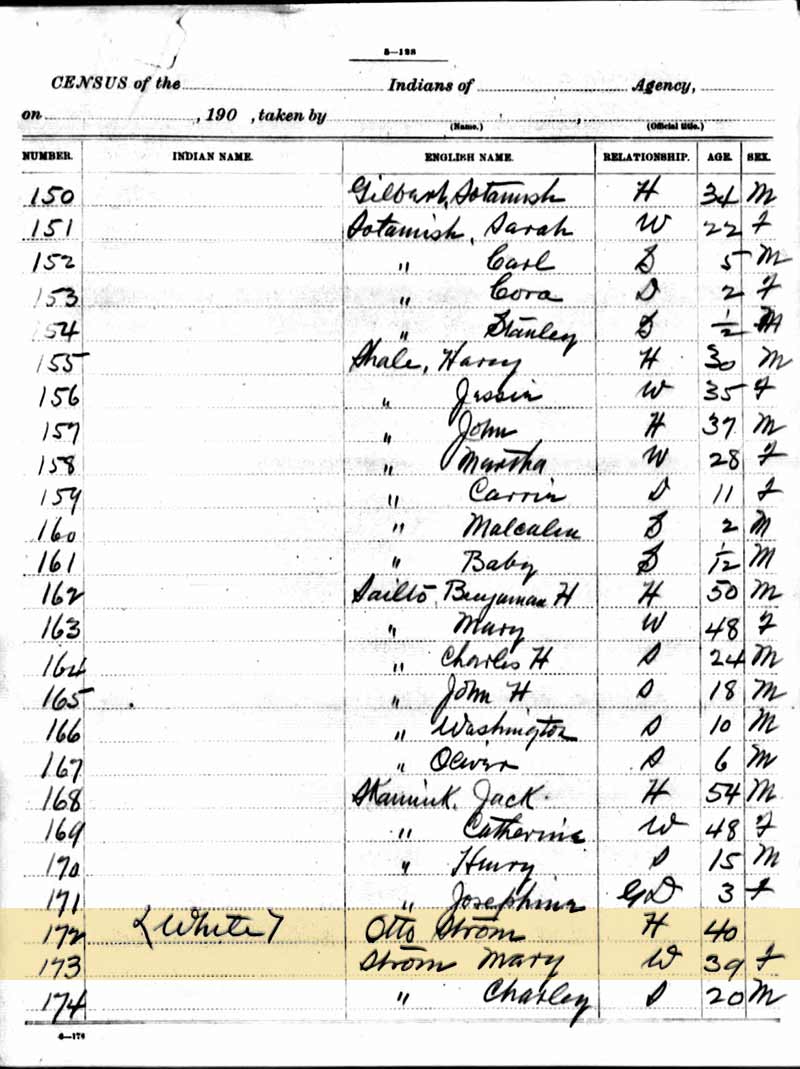 5—128
CENSUS of the Indians of Agency,
on , 190 , taken by ,
(Name.) (Official title.)
NUMBER. INDIAN NAME. ENGLISH NAME. RELATIONSHIP. AGE. SEX.
150 Gilbert, Sotamish H 34 M
151 Sotamish, Sarah W 22 F
152 " Carl S 5 M
153 " Cora D 2 F
154 " Stanley S 1/2 M
155 Shale, Harry H 30 M
156 " Jessie W 35 F
157 " John H 37 M
158 " Martha W 28 F
159 " Carrie D 11 F
160 " Malcalm S 2 M
161 " Baby S 1/12 M
162 Sailto, Benjaman H H 50 M
163 " Mary W 48 F
164 " Charles H S 24 M
165 " John H S 18 M
166 " Washington S 10 M
167 " Oliver S 6 M
168 Skamink, Jack H 54 M
169 " Catherine W 48 F
170 " Henry S 15 M
171 " Josephine GD 3 F
172 (White) Otto Strom H 40
173 Strom Mary W 39 F
174 " Charley S 20 M
6—178